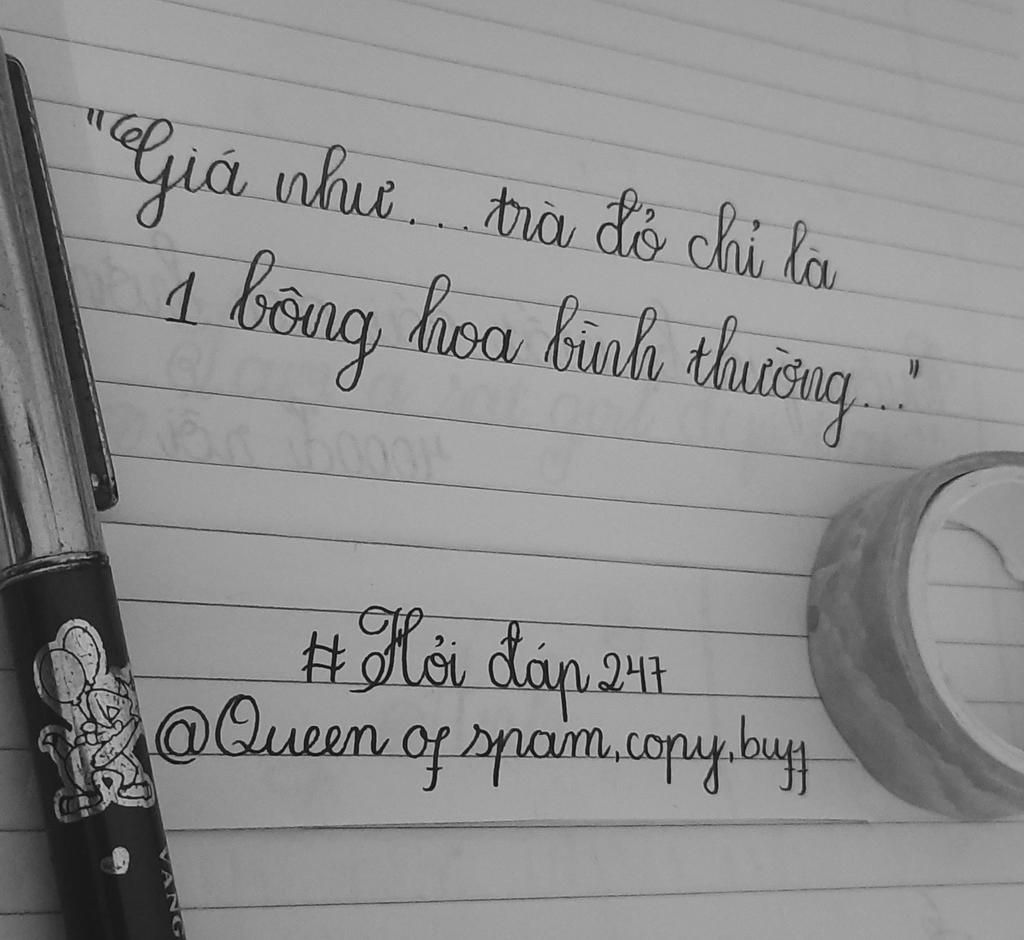 "Giá như... trà đỏ chỉ là
1 bông hoa bình thường..."
#Hỏi đáp 247
@Queen of spam,copy,buff
VANG